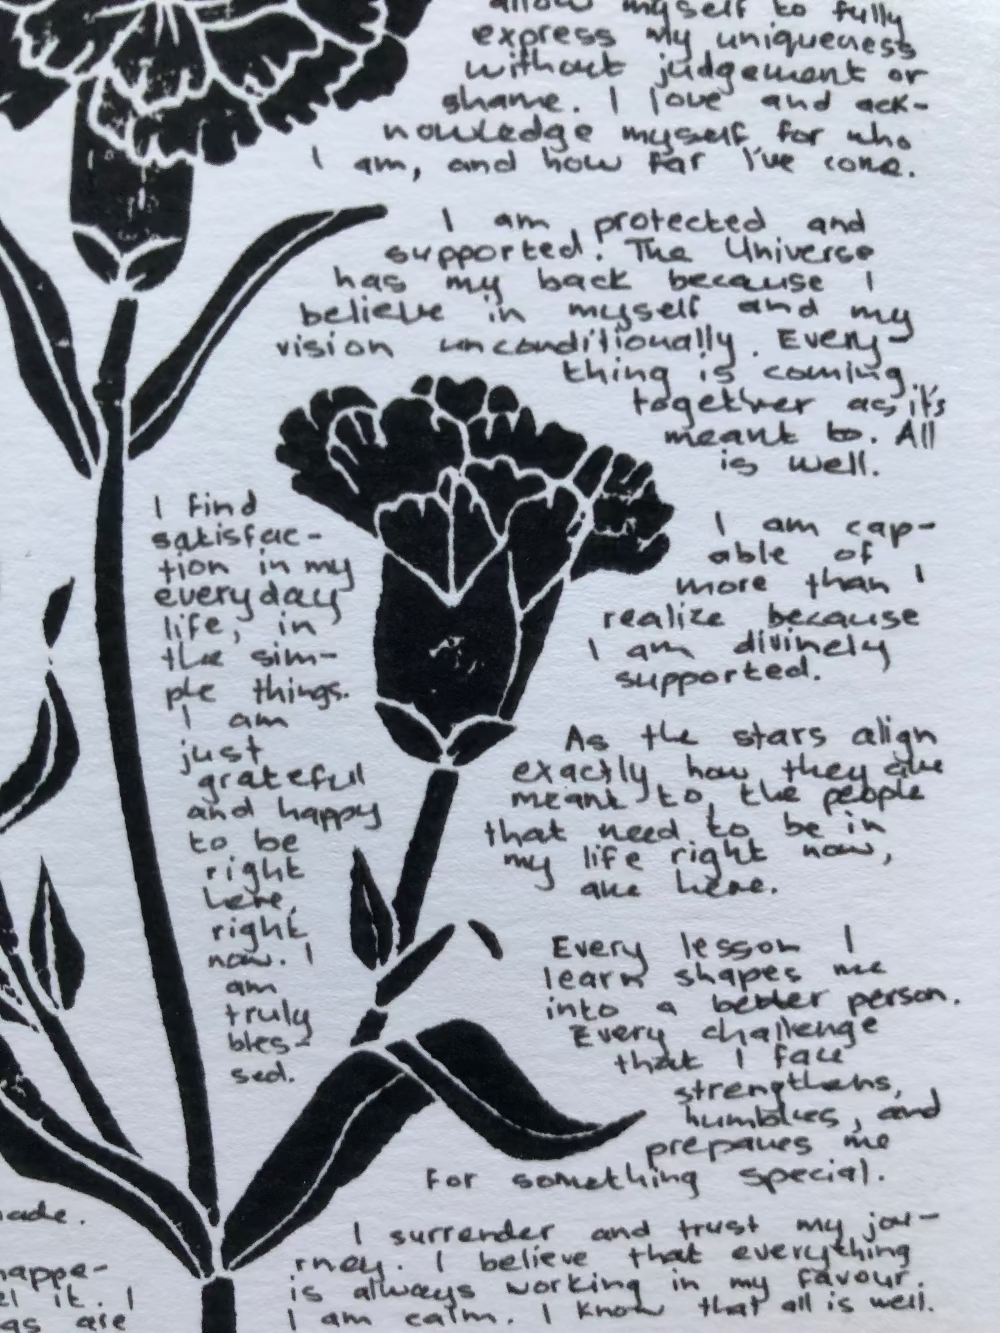 allow myself to fully
express my uniqueness
without judgement or
shame. I love and ack-
nowledge myself for who
I am, and how far I've come.
I am protected and
supported. The Universe
has my back because I
believe in myself and my
vision unconditionally. Every-
thing is coming
together as it's
meant to. All
is well.
I find
satisfac-
tion in my
everyday
life, in
the sim-
ple things.
I am
just
grateful
and happy
to be
right
here,
right
now. I
am
truly
bles-
sed.
I am cap-
able of
more than I
realize because
I am divinely
supported.
As the stars align
exactly how they are
meant to, the people
that need to be in
my life right now,
are here.
Every lesson I
learn shapes me
into a better person.
Every challenge
that I face
strengthens,
humbles, and
prepares me
for something special.
I surrender and trust my jou-
rney. I believe that everything
is always working in my favour.
I am calm. I know that all is well.
made.
happe-
el it. I
gs are